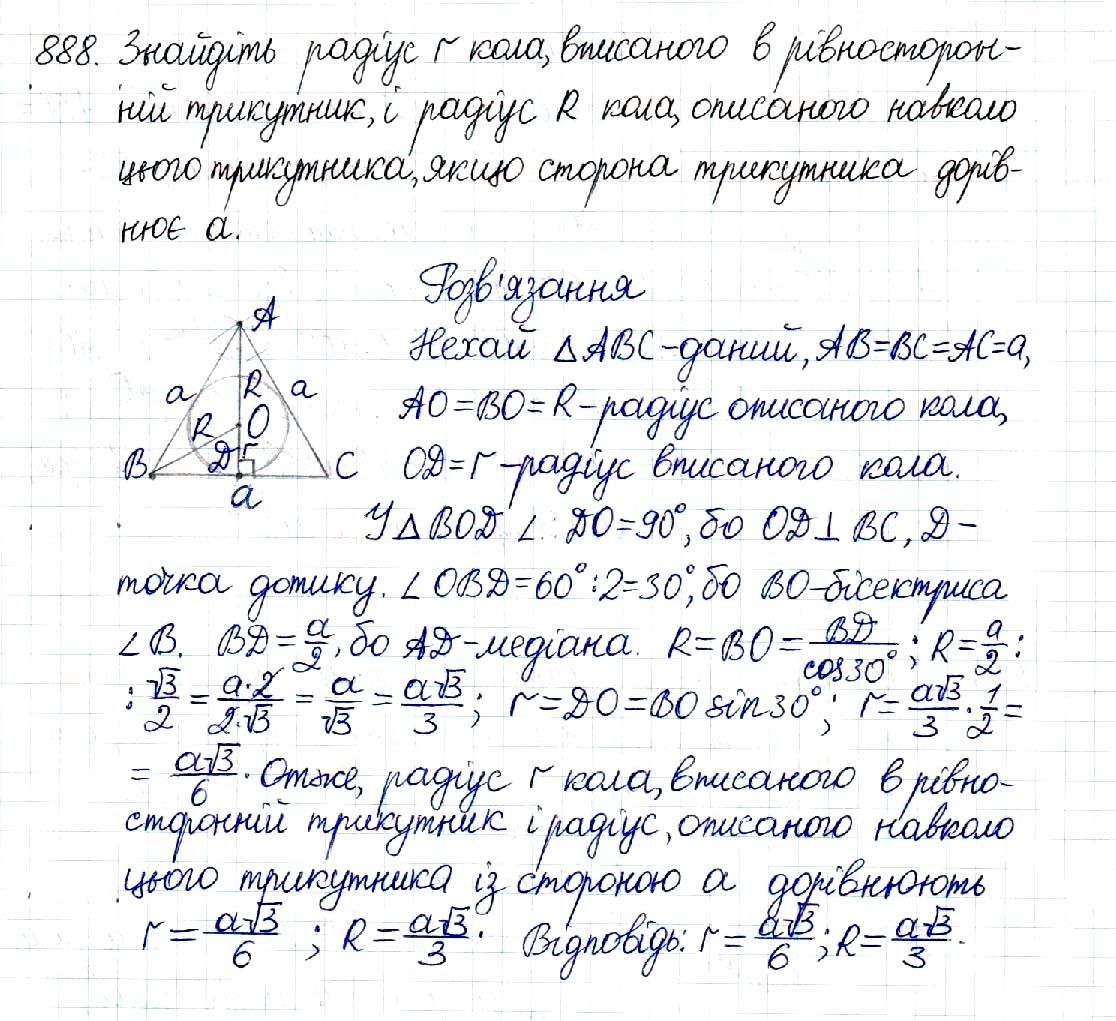 888. Знайдіть радіус r кола, вписаного в рівносторон-
ній трикутник, і радіус R кола, описаного навколо
цього трикутника, якщо сторона трикутника дорів-
нює a.
Розв'язання
Нехай △ABC-даний, AB=BC=AC=a,
AO=BO=R-радіус описаного кола,
OD=r-радіус вписаного кола.
A
a R a
R O
B D r C
a
У △BOD ∠ DO=90°, бо OD⊥BC, D-
точка дотику. ∠OBD=60°:2=30°, бо BO-бісектриса
∠B. BD=a/2, бо AD-медіана. R=BO=BD/cos30°; R=a/2:
:√3/2=a·2/2·√3=a/√3=a√3/3; r=DO=BO sin30°; r=a√3/3·1/2=
=a√3/6. Отже, радіус r кола, вписаного в рівно-
сторонній трикутник і радіус, описаного навколо
цього трикутника із стороною a дорівнюють
r=a√3/6; R=a√3/3. Відповідь: r=a√3/6; R=a√3/3.